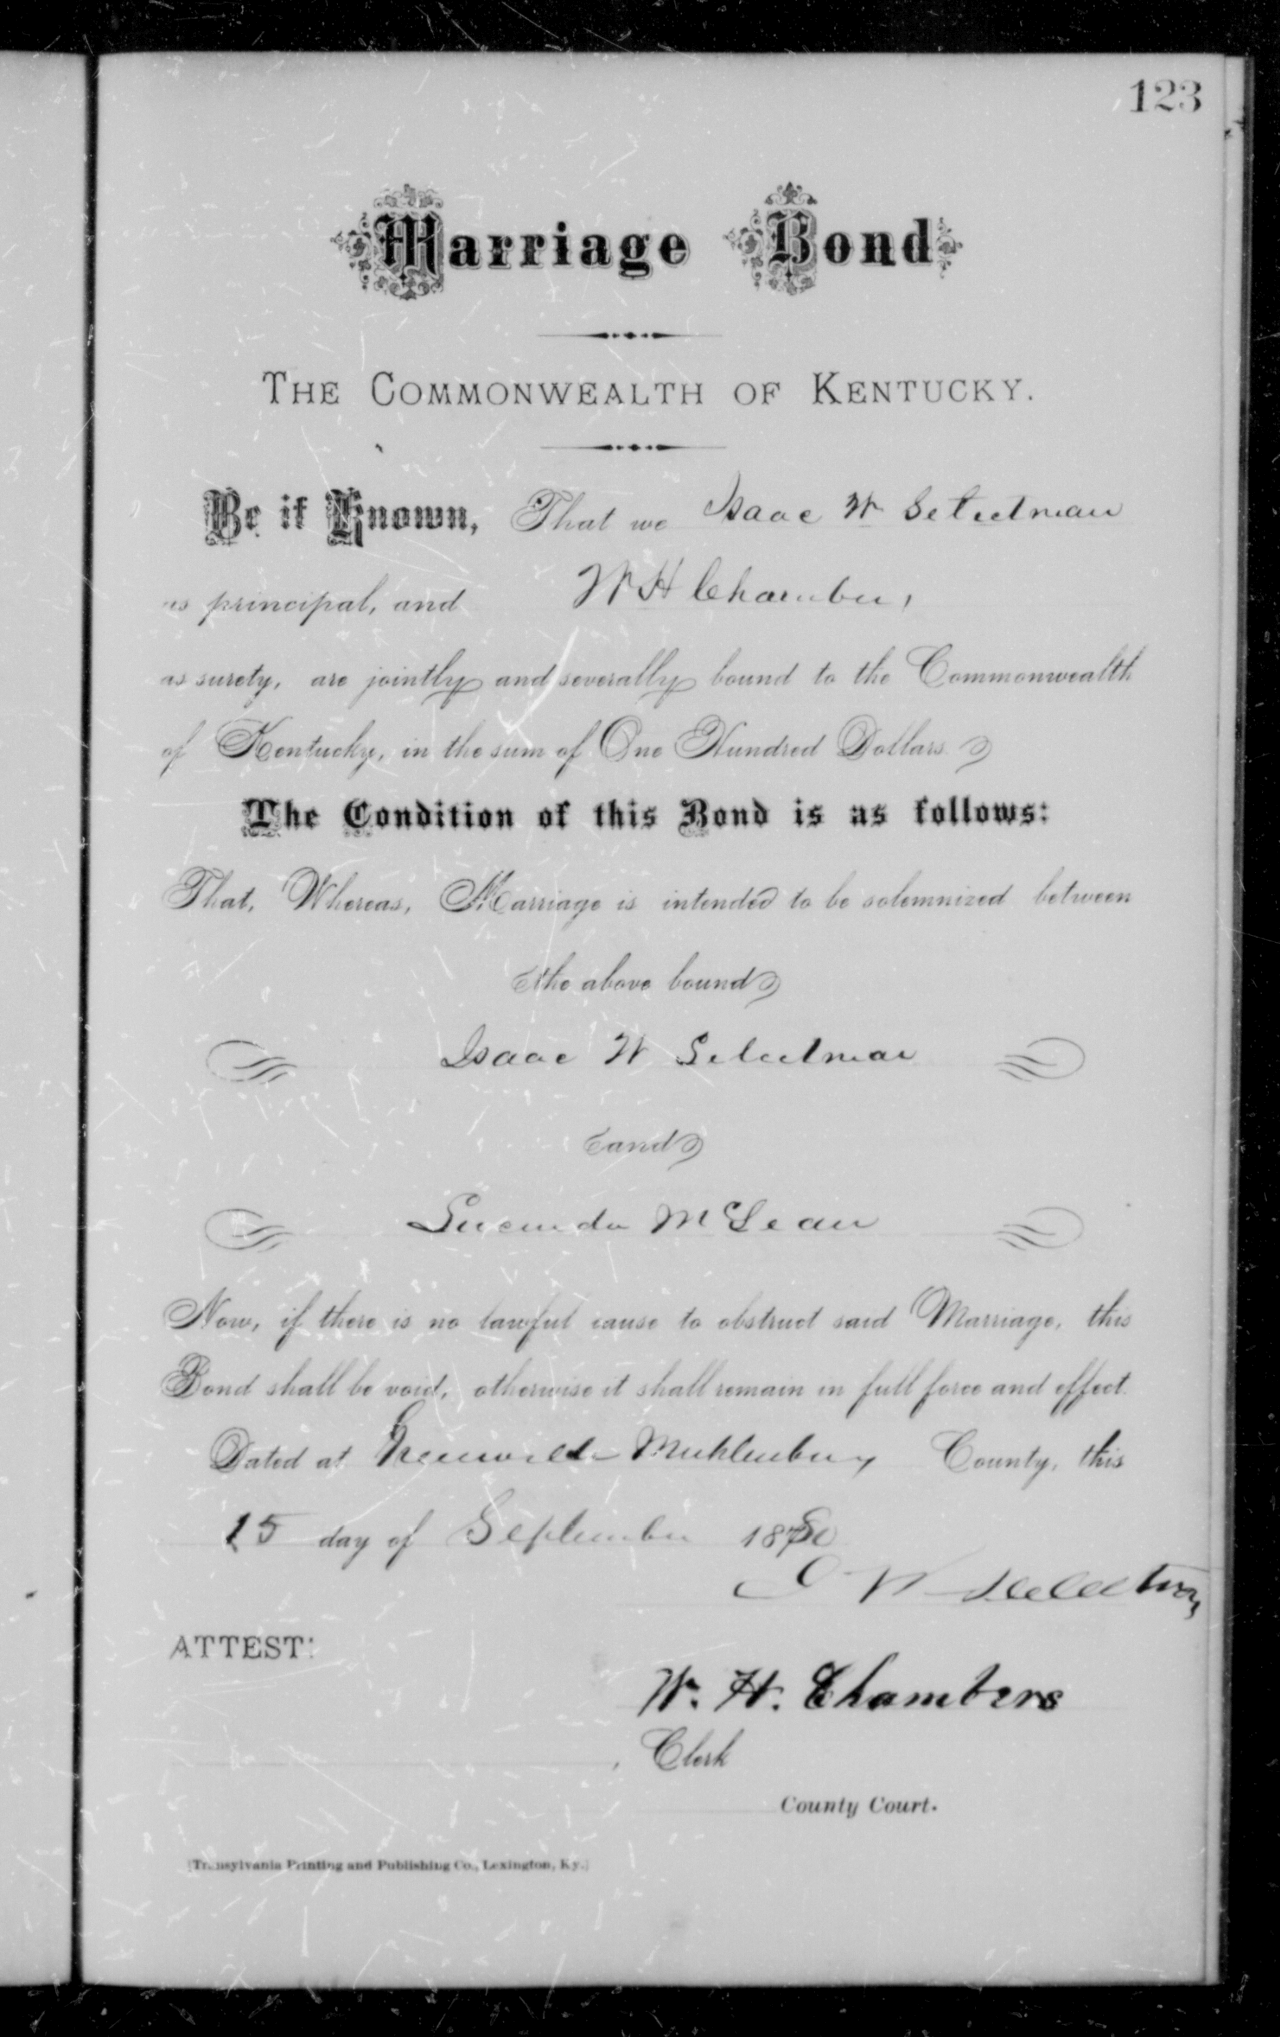 123
Marriage Bond
THE COMMONWEALTH OF KENTUCKY.
Be it Known, That we Isaac W Selectman
as principal, and W H Chambers,
as surety, are jointly and severally bound to the Commonwealth
of Kentucky, in the sum of One Hundred Dollars.
The Condition of this Bond is as follows:
That, Whereas, Marriage is intended to be solemnized between
the above bound
Isaac W Selectman
and
Lucinda McLean
Now, if there is no lawful cause to obstruct said Marriage, this
Bond shall be void, otherwise it shall remain in full force and effect.
Dated at Greenville Muhlenburg County, this
15 day of September 1880
I W Selectman
ATTEST:
W. H. Chambers
, Clerk
County Court.
[Transylvania Printing and Publishing Co., Lexington, Ky.]